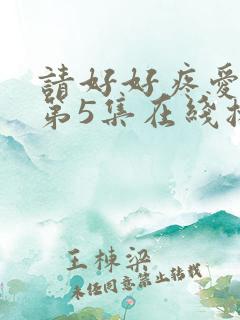 請好好疼愛
第5集在綫
王棟梁
未经同意禁止转载